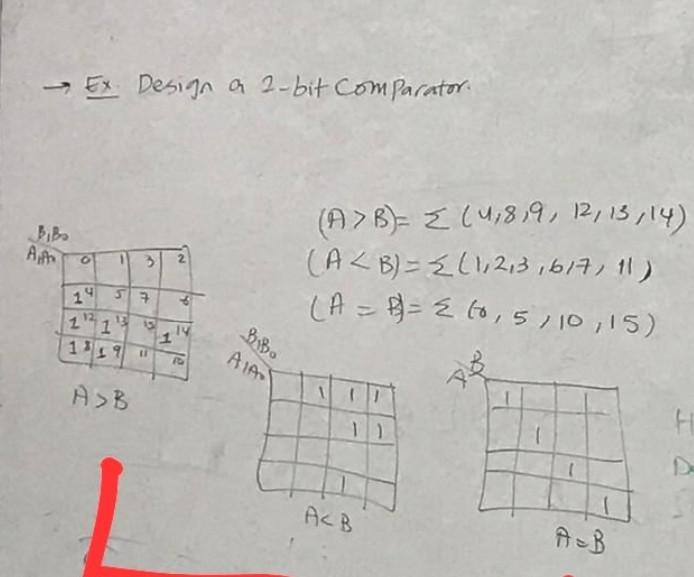 → Ex. Design a 2-bit Comparator.
(A > B) = Σ (4,8,9, 12, 13, 14)
(A < B) = Σ (1,2,3,6,7, 11)
(A = B) = Σ (0, 5, 10, 15)
B₁B₀
A₁A₀
0 1 3 2
1 4 5 7 6
1 12 1 13 15 1 14
1 8 1 9 11 10
A > B
B₁B₀
A₁A₀
1 1 1
1 1
1
A < B
B
A
1
1
1
1
A = B